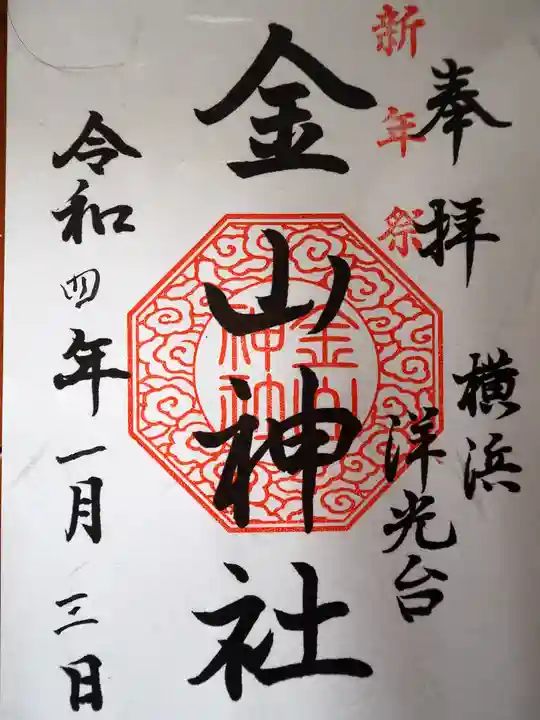 奉拝
横浜
洋光台
新年祭
金山神社
金山神社
令和四年一月三日